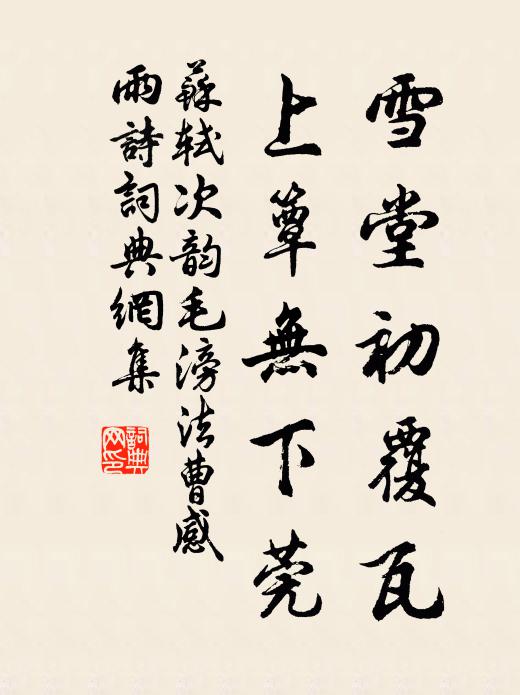 雪堂初覆瓦
上簟無下莞
蘇軾次韵毛滂法曹感
雨詩詞典網集
詞典
网印